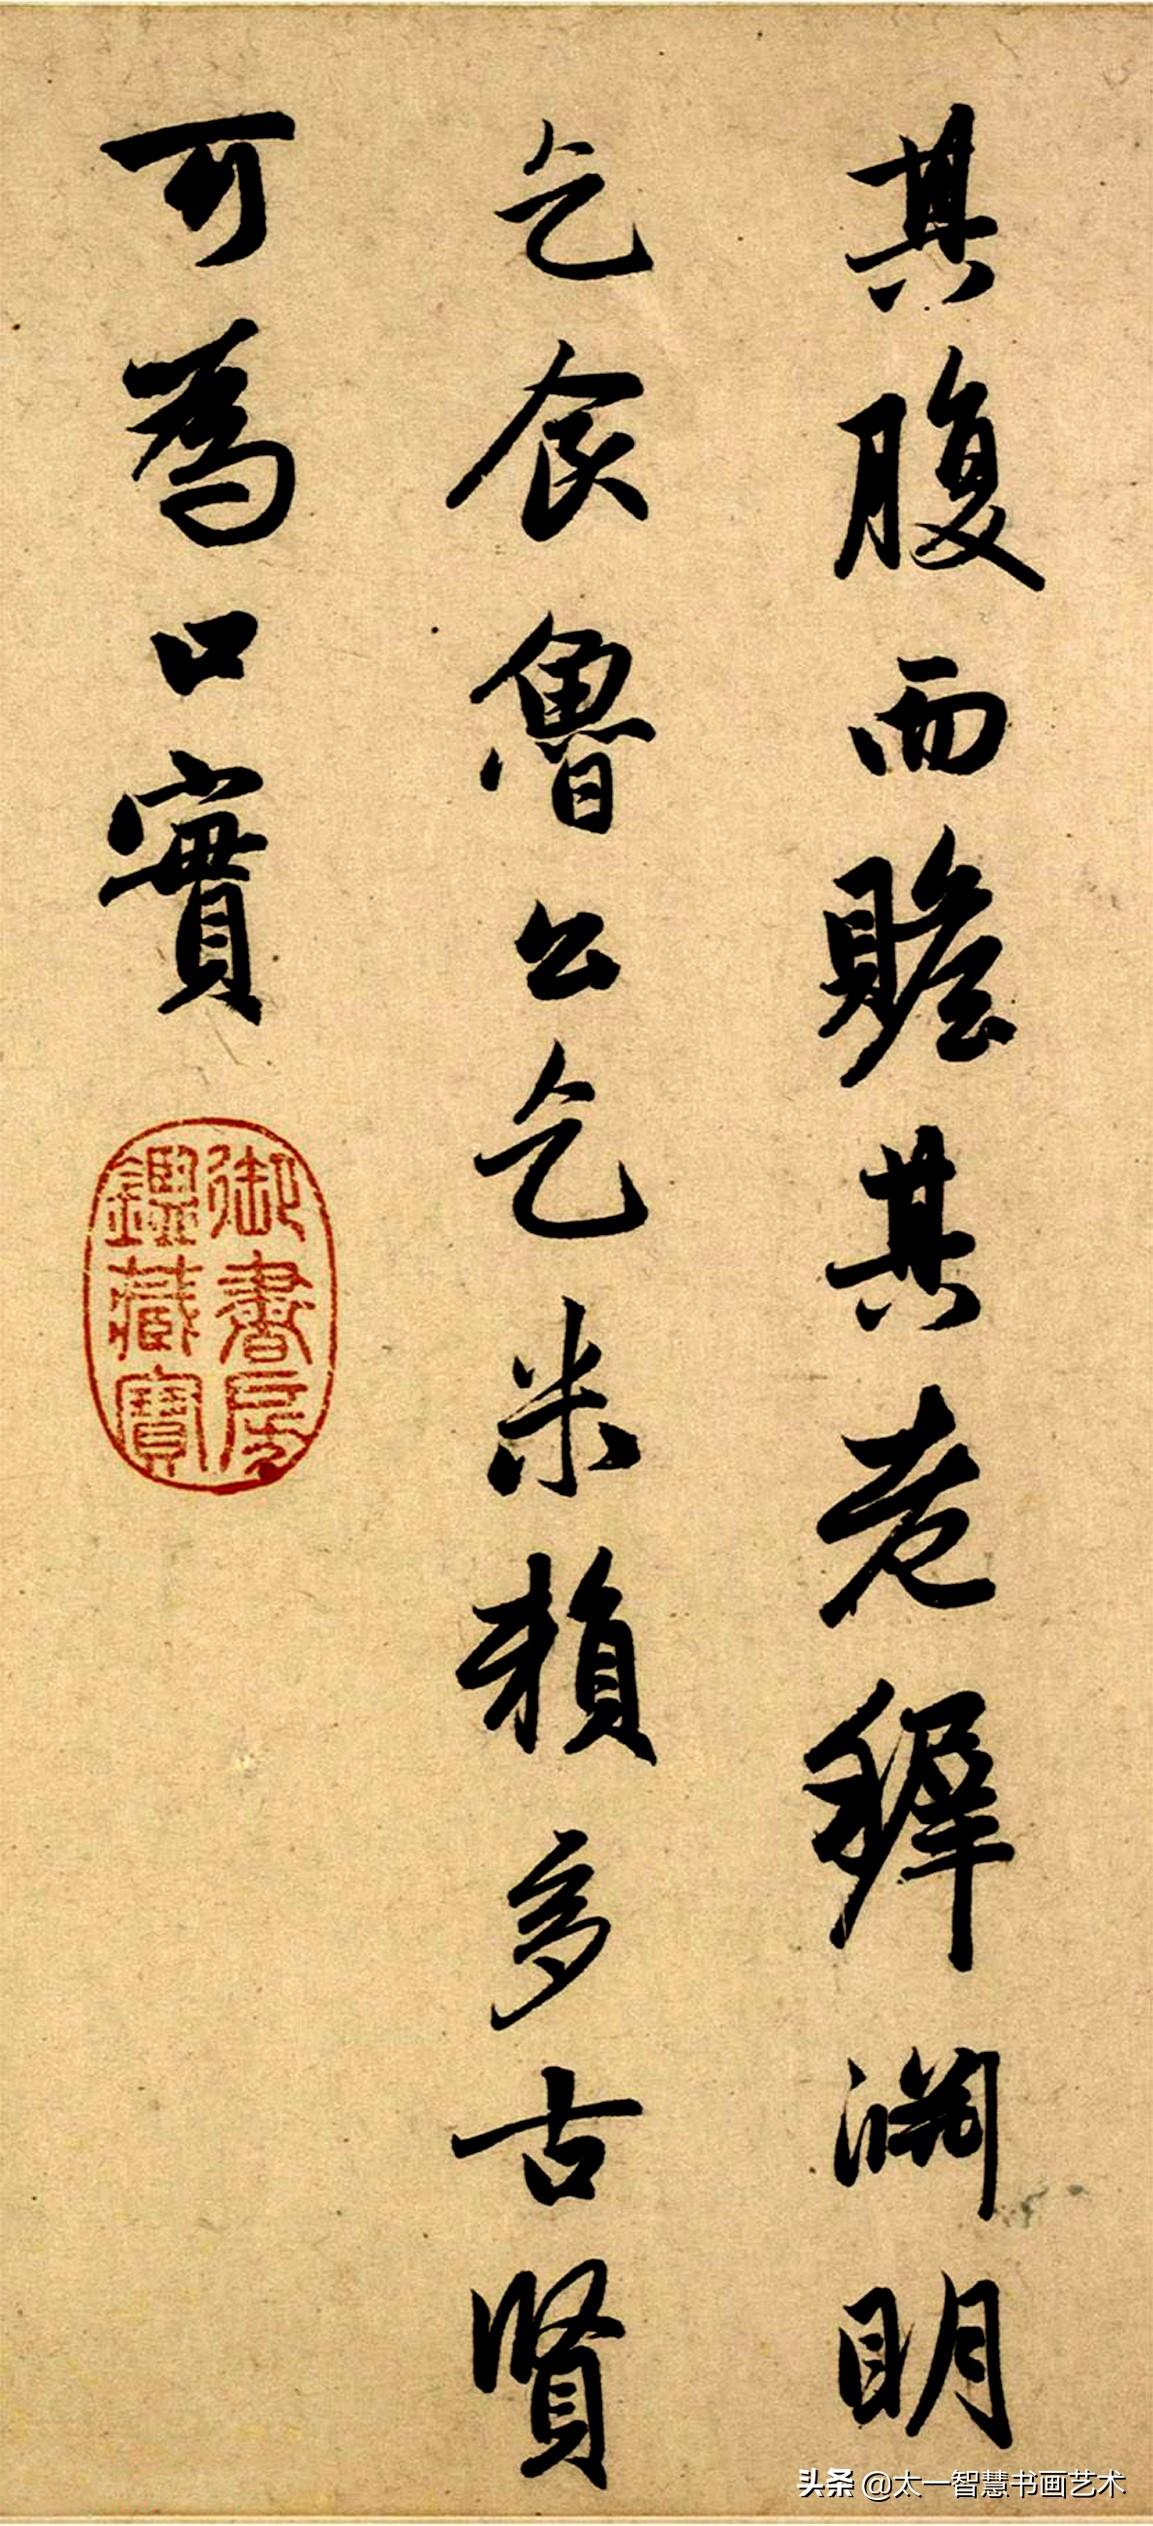 其腹而贍其老穉淵明
乞食魯公乞米賴多古賢
可為口實
御書房
鑑藏寶
头条 @太一智慧书画艺术